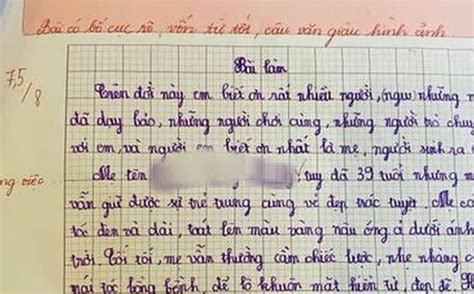 Bài có bố cục rõ, vốn từ tốt, câu văn giàu hình ảnh
Bài làm
7,5/8
Trên đời này em biết ơn rất nhiều người, (ngư) những
đã dạy bảo, những người chơi cùng, những người trò chu
với em, và người em biết ơn nhất là mẹ, người sinh ra
Mẹ tên tuy đã 39 tuổi nhưng
ng việc
vẫn giữ được sự trẻ trung cùng vẻ đẹp trác tuyệt. Mẹ có
tóc đen và dài, tát lên màu vàng nâu óng ả dưới ánh
trời. Tối tối, mẹ vẫn thường cầm chiếc lược, nhẹ nhàng c
mái tóc bồng bềnh, để lộ khuôn mặt hiền từ, đẹp đẽ.